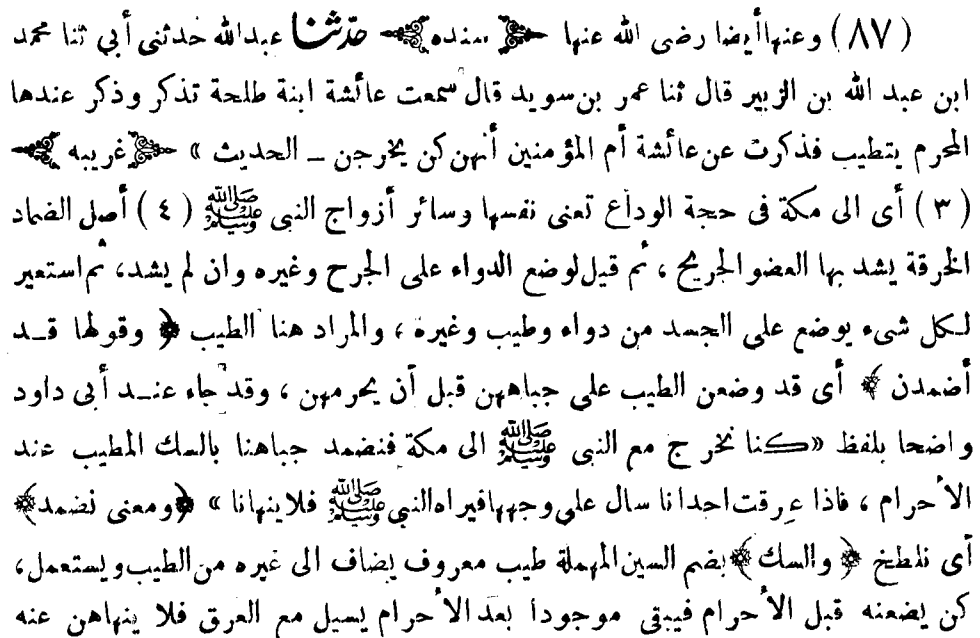 (٨٧) وعنها أيضا رضى الله عنها ﴿ سنده ﴾ حدثنا عبد الله حدثنى أبي ثنا محمد
ابن عبد الله بن الزبير قال ثنا عمر بن سويد قال سمعت عائشة ابنة طلحة تذكر وذكر عندها
المحرم يتطيب فذكرت عن عائشة أم المؤمنين أنهن كن يخرجن ــ الحديث » ﴿ غريبه ﴾
(٣) أى الى مكة فى حجة الوداع تعنى نفسها وسائر أزواج النبى ﷺ (٤) أصل الضماد
الخرقة يشد بها العضو الجريح ، ثم قيل لوضع الدواء على الجرح وغيره وان لم يشد، ثم استعير
لكل شىء يوضع على الجسد من دواء وطيب وغيره ، والمراد هنا الطيب ﴿ وقولها قد
أضمدن ﴾ أى قد وضعن الطيب على جباههن قبل أن يحرمهن ، وقد جاء عند أبى داود
واضحا بلفظ «كنا نخرج مع النبى ﷺ الى مكة فنضمد جباهنا بالسك المطيب عند
الأحرام ، فاذا عرقت احدانا سال على وجهها فيراه النبي ﷺ فلا ينهانا » ﴿ ومعنى نضمد ﴾
أى نلطخ ﴿ والسك ﴾ بضم السين المهملة طيب معروف يضاف الى غيره من الطيب ويستعمل،
كن يضعنه قبل الأحرام فيبقى موجودا بعد الأحرام يسيل مع العرق فلا ينهاهن عنه